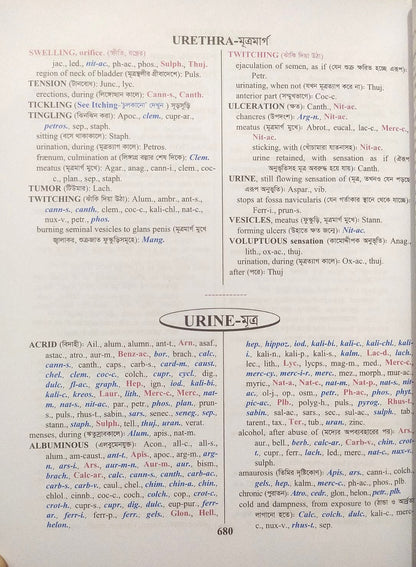 URETHRA-মূত্রমার্গ
SWELLING, orifice. (স্ফীতি, যন্ত্রের)
jac., led., nit-ac., ph-ac., phos., Sulph., Thuj.
region of neck of bladder (মূত্রস্থলীর গ্রীবাদেশে): Puls.
TENSION (টানবোধ): Junc., lyc.
erections, during (লিঙ্গোত্থান কালে): Cann-s., Canth.
TICKLING (See Itching-'চুলকানো' দেখুন ) সুড়সুড়ি
TINGLING (ঝিনঝিন করা): Apoc., clem., cupr-ar.,
petros., sep., staph.
sitting (বসে থাকাকালে): Staph.
urination, during (মূত্রত্যাগ কালে): Petros.
frænum, culmination at (লিঙ্গাগ্র বন্ধার শেষ দিকে): Clem.
meatus (মূত্রমার্গ মুখে): Agar., anag., cann-i., clem., coc-
c., plan., sep., staph.
TUMOR (টিউমার): Lach.
TWITCHING (ঝাঁকি দিয়া উঠা): Alum., ambr., ant-s.,
cann-s., canth., clem., coc-c., kali-chl., nat-c.,
nux-v., petr., phos.
burning seminal vesicles to glans penis (মূত্রমার্গ মুখে
জ্বালাকর, শুক্রজাত ফুস্কুড়িসমূহে): Mang.
TWITCHING (ঝাঁকি দিয়া উঠা)
ejaculation of semen, as if (যেন শুক্র ক্ষরিত হচ্ছে এরূপ):
Petr.
urinating, when not (যখন মূত্রত্যাগ করে না): Thuj.
anterior part (সম্মুখভাগে): Coc-c.
ULCERATION (ক্ষত): Canth., Nit-ac.
chancres (উপদংশ): Arg-n., Nit-ac.
meatus (মূত্রমার্গ মুখে): Abrot., eucal., lac-c., Merc-c.,
Nit-ac.
sticking, with (খোঁচামারা যাতনাসহ): Nit-ac.
urine retained, with sensation as if (এরূপ
অনুভূতিসহ মূত্র অবরুদ্ধ হয়ে যায়): Canth.
URINE, still flowing sensation of (মূত্র, তখনও যেন পড়ছে
এরূপ অনুভূতি): Aspar., vib.
stops at fossa navicularis (যেন গর্তাকার স্থানে থেকে যাচ্ছে):
Ferr-i., prun-s.
VESICLES, meatus (ফুস্কুড়ি, মূত্রমার্গ মুখে): Stann.
forming ulcers (উহাতে ক্ষত জন্মে): Nit-ac.
VOLUPTUOUS sensation (কামোদ্দীপক অনুভূতি): Anag.,
lith., ox-ac., thuj.
urination, during (মূত্রত্যাগ কালে): Ox-ac., thuj.
after (পরে): Thuj
URINE-মূত্র
ACRID (বিদাহী): Ail., alum., alumn., ant-t., Arn., asaf.,
astac., atro., aur-m., Benz-ac., bor., brach., calc.,
cann-s., canth., caps., carb-s., card-m., caust.,
chel., clem., coc-c., colch., cupr., cycl., dig.,
dulc., fl-ac., graph., Hep., ign., iod., kali-bi.,
kali-c., kreos., Laur., lith., Merc-c., Merc., nat-
m., nat-s., nit-ac., par., petr., phos., plan., prun-
s., puls., rhus-t., sabin., sars., senec., seneg., sep.,
stann., staph., Sulph., tell., thuj., uran., verat.
menses, during (ঋতুস্রাবকালে): Alum., apis., nat-m.
ALBUMINOUS (এলবুমেনযুক্ত): Acon., all-c., all-s.,
alum., am-caust., ant-t., Apis., apoc., arg-m., arg-
n., ars-i., Ars., aur-m-n., Aur-m., aur., bism.,
brach., Calc-ar., calc., cann-s., canth., carb-ac.,
carb-s., carb-v., caul., chel., chim., chin-a., chin.,
chlol., cinnb., coc-c., coch., colch., cop., crot-c.,
crot-h., cupr-s., cupr., dig., dulc., eup-pur., ferr-
ar., ferr-i., ferr-p., ferr., gels., Glon., Hell.,
helon.,
hep., hippoz., iod., kali-bi., kali-c., kali-chl., kali-
i., kali-n., kali-p., kali-s., kalm., Lac-d., lach.,
lec., lith., Lyc., lycps., mag-m., med., Merc-c.,
merc-cy., merc-i-r., merc., mez., morph., mur-ac.,
myric., Nat-a., Nat-c., nat-m., Nat-p., nat-s., nit-
ac., ol-j., op., osm., petr., Ph-ac., phos., phyt.,
pic-ac., Plb., polyg-h., puls., pyrog., Rhus-t.,
sabin., sal-ac., sars., sec., sul-ac., sulph., tab.,
tarent., tax., Ter., tub., uran., zinc.
alcohol, after abuse of (মদের অপব্যবহারের পর): Ars.,
aur., bell., berb., calc-ar., Carb-v., chin., crot-
t., cupr., ferr., lach., led., merc., nat-c., nux-v.,
sulph.
amaurosis (তিমির দৃষ্টিকোণ): Apis., ars., cann-i., colch.,
gels., hep., kalm., merc-c., ph-ac., phos., plb.
chronic (পুরাতন): Atro., cedr., glon., helon., petr., plb.
cold and dampness, from exposure to (ঠাণ্ডা ও আর্দ্রতা
লাগানো হতে): Calc., colch., dulc., kali-c., merc-
c., nux-v., rhus-t., sep.
680